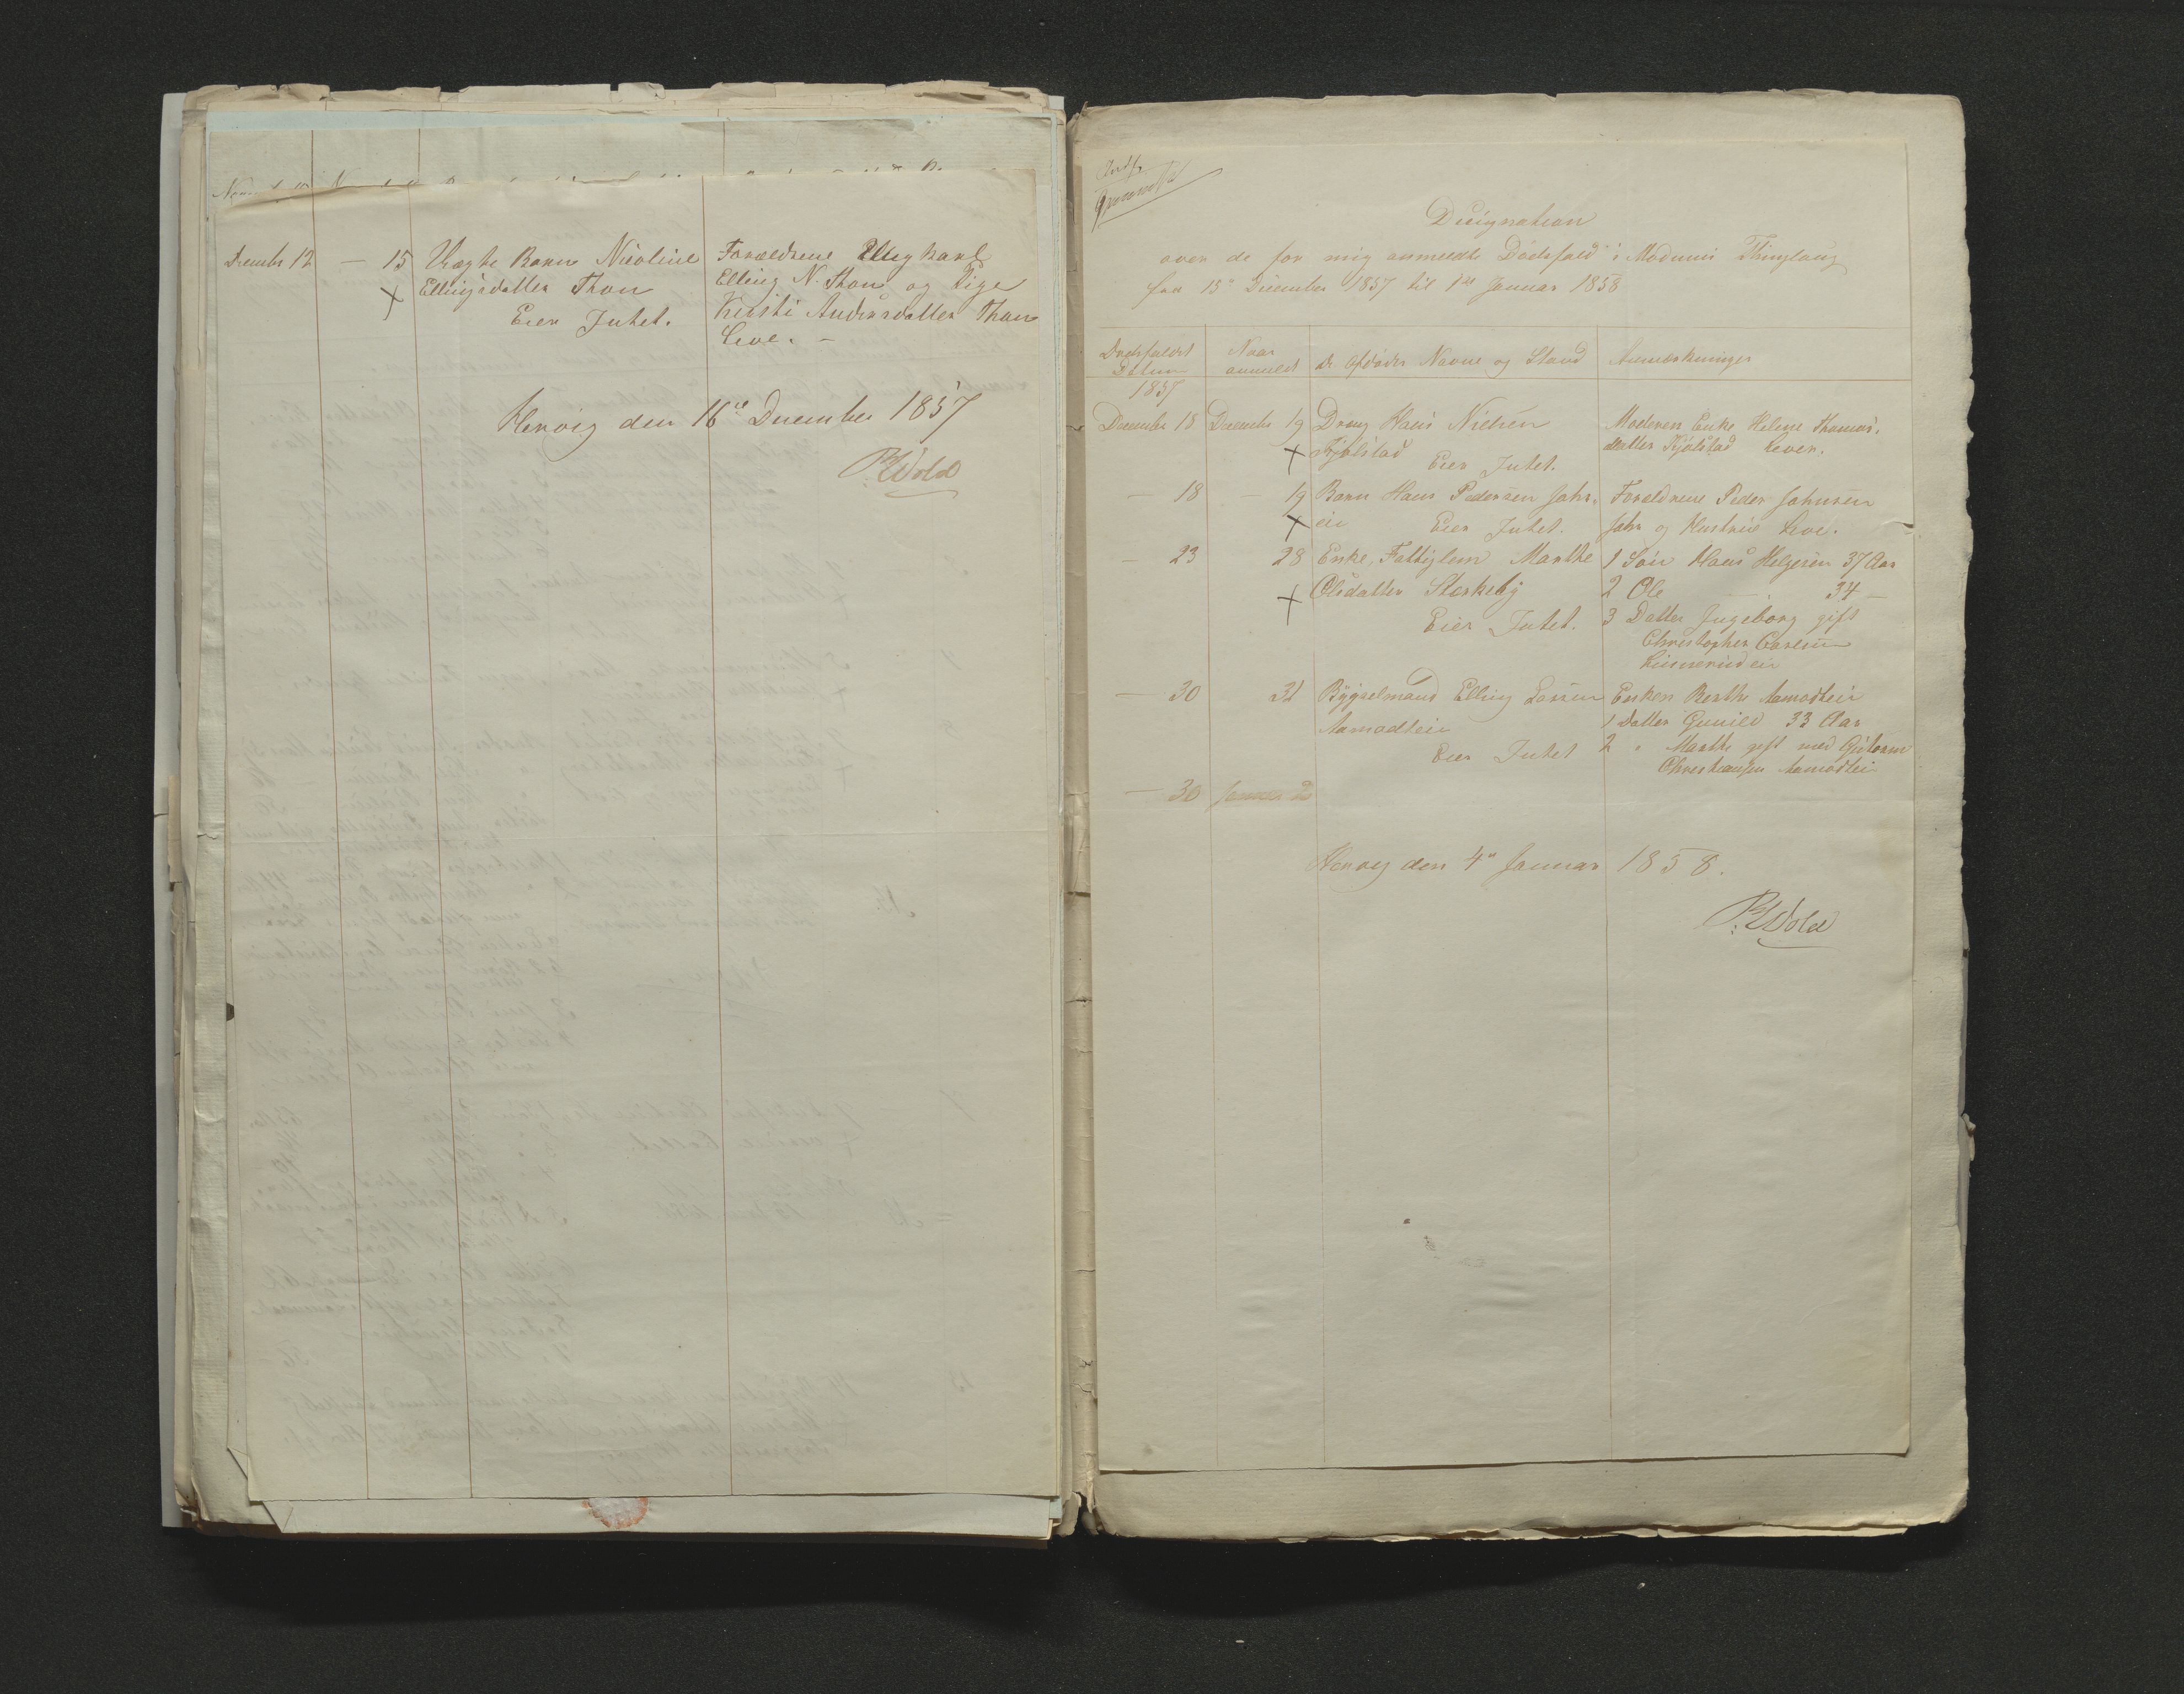 December 12 — 15 Uægte Barn Nicoline
Ellingsdatter Thon
Eier Intet.
Forældrene Ungkarl
Elling N. Thon og Pige
Kirsti Andersdatter Thon
leve. —
Hervig den 16de December 1857
Wold
Designation
over de for mig anmeldte Dødsfald i Modums Thinglaug
fra 15de December 1857 til 1ste Januar 1858
Dødsfaldet
Datum
Naar
anmeldt
De Afdødes Navne og Stand
Anmærkninger
1857
December 18 December 19 Dreng Hans Nielsen
Kjølstad
Eier Intet.
Moderen Enke Helene Thomas-
datter Kjølstad lever.
— 18 — 19 Barn Hans Pedersen Jahr-
eie Eier Intet.
Forældrene Peder Johnsen
Jahr og Hustrue leve.
— 23 28 Enke, Fattiglem Marthe
Olsdatter Storkeby
Eier Intet.
1 Søn Hans Helgesen 37 Aar
2 Ole — 34 —
3 Datter Ingeborg gift
Christopher Carlsen
— 30 31 Bygselmand Elling Larsen
Aamodteie
Eier Intet
Enken Berthe Aamodteie
1 Datter Gunild 33 Aar
2 " Marthe gift med Guttorm
Christiansen Aamodteie
— 30 Januar 2
Hervig den 4de Januar 1858.
Wold